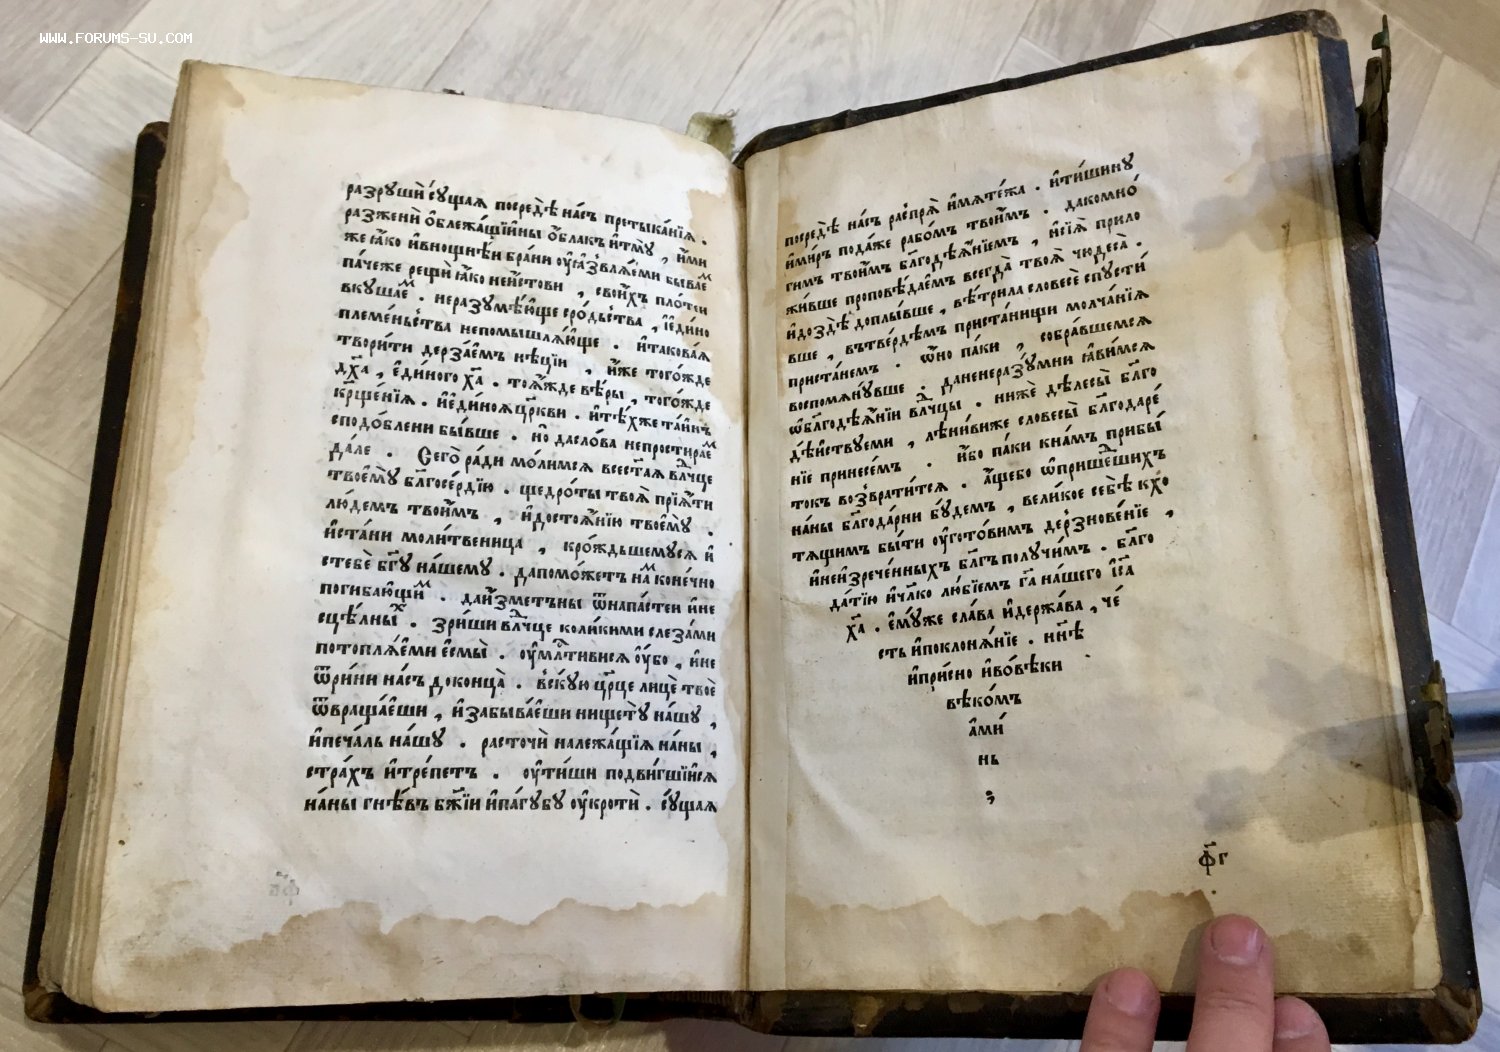 WWW.FORUMS-SU.COM
разрꙋшѝ сꙋ́щаѧ посредѣ̀ на́съ претыка́нїѧ .
разженѝ ѻ҆блежа́щїѧ ны ѻ҆́блакъ и҆ тмꙋ̀ , и҆́ми
же ꙗ҆́ко и҆ в нощнѣ́и бра́ни ᲂу҆ꙗзвлѧ́еми быва́еⷨ
па́че же рещѝ ꙗ҆́ко неи҆́стови , свои́хъ пло́теи
вкꙋша́еⷨ . неразꙋмѣ́юще сро́дьства , и҆ є҆ди́но
племе́ньства непомышлѧ́юще . и҆ такова́ѧ
твори́ти дерза́емъ нѣ́цїи , и҆́же того́жде
дх҃а , є҆ди́ного хⷭ҇а . тоѧ́жде вѣ́ры , того́жде
крⷭ҇ще́нїѧ . и҆ є҆ди́ноѧ цр҃кви . и҆ тѣ́хже та́инъ
сподо́блени бы́вше . но̀ да сло́ва непростира́еⷨ
да́ле . Сего̀ ра́ди мо́лимсѧ всест҃аѧ влⷣчце
твоемꙋ̀ бл҃госе́рдїю . щедро́ты твоѧ̀ прїѧ́ти
лю́демъ твои́мъ , и҆ достоѧ́нїю твоемꙋ̀ .
и҆ ста́ни моли́твеница , к ро́ждьшемꙋсѧ и҆
стебѐ бг҃ꙋ на́шемꙋ . да помо́жетъ наⷨ коне́чно
погиба́ющиⷨ . да и҆́зметъ ны ѿ напа́стеи и҆ не
сцѣ́лныⷯ . зри́ши влⷣчце коли́кими слеза́ми
потоплѧ́еми є҆смы̀ . ᲂу҆млⷭ҇тивисѧ ᲂу҆̀бо , и҆ не
ѿри́ни на́съ до конца̀ . вскꙋ́ю цр҃це лицѐ твоѐ
ѿвраща́еши , и҆ забыва́еши нищетꙋ̀ на́шꙋ ,
и҆ печа́ль на́шꙋ . расточѝ належа́щїѧ на́ны ,
стра́хъ и҆ тре́петъ . ᲂу҆ти́ши подви́гшїисѧ
на́ны гнѣ́въ бж҃їи и҆ па́гꙋбꙋ ᲂу҆кротѝ . сꙋ́щаѧ
посредѣ̀ на́съ ра́спрѧ и҆ мѧте́жа . и҆ тишинꙋ̀
и҆ ми́ръ пода́же рабо́мъ твои́мъ . да ко мно́
гимъ твои́мъ бл҃годѣѧ́нїемъ , и҆ сїѧ̀ прило
жи́вше проповѣ́даемъ всегда̀ твоѧ̀ чюдеса̀ .
и҆ до здѣ̀ доплы́вше , вѣ́трила словесѐ спꙋсти́
вше , в тве́рдѣмъ приста́нищи молча́нїѧ
приста́немъ . ѿню̀ па́ки , собра́вшемсѧ
воспомѧнꙋ́вше . да ненеразꙋ́мни ꙗ҆ви́мсѧ
ѡ҆ бл҃годѣѧ́нїи влⷣчцы . нижѐ дѣ́лесы̀ бл҃го
дѣ́йствꙋеми , лѣни́виже словесы̀ бл҃годаре́
нїе принесе́мъ . и҆́бо па́ки к на́мъ прибы́
токъ возврати́тсѧ . а҆́ще бо ѡ҆ прише́дшихъ
на́ны бл҃года́рни бꙋ́демъ , вели́кое себѣ̀ к хо
тѧ́щимъ бы́ти ᲂу҆гото́вимъ дерзнове́нїе ,
и҆ неи҆зрече́нныхъ бл҃гъ полꙋчи́мъ . бл҃го
да́тїю и҆ чл҃колю́бїемъ гⷭ҇а на́шего і҆с҃а
хⷭ҇а . є҆мꙋ́же сла́ва и҆ держа́ва , че́
сть и҆ поклонѧ́нїе . нн҃ѣ
и҆ при́сно и҆ во вѣ́ки
вѣко́мъ
а҆ми́
нь
ф҃г